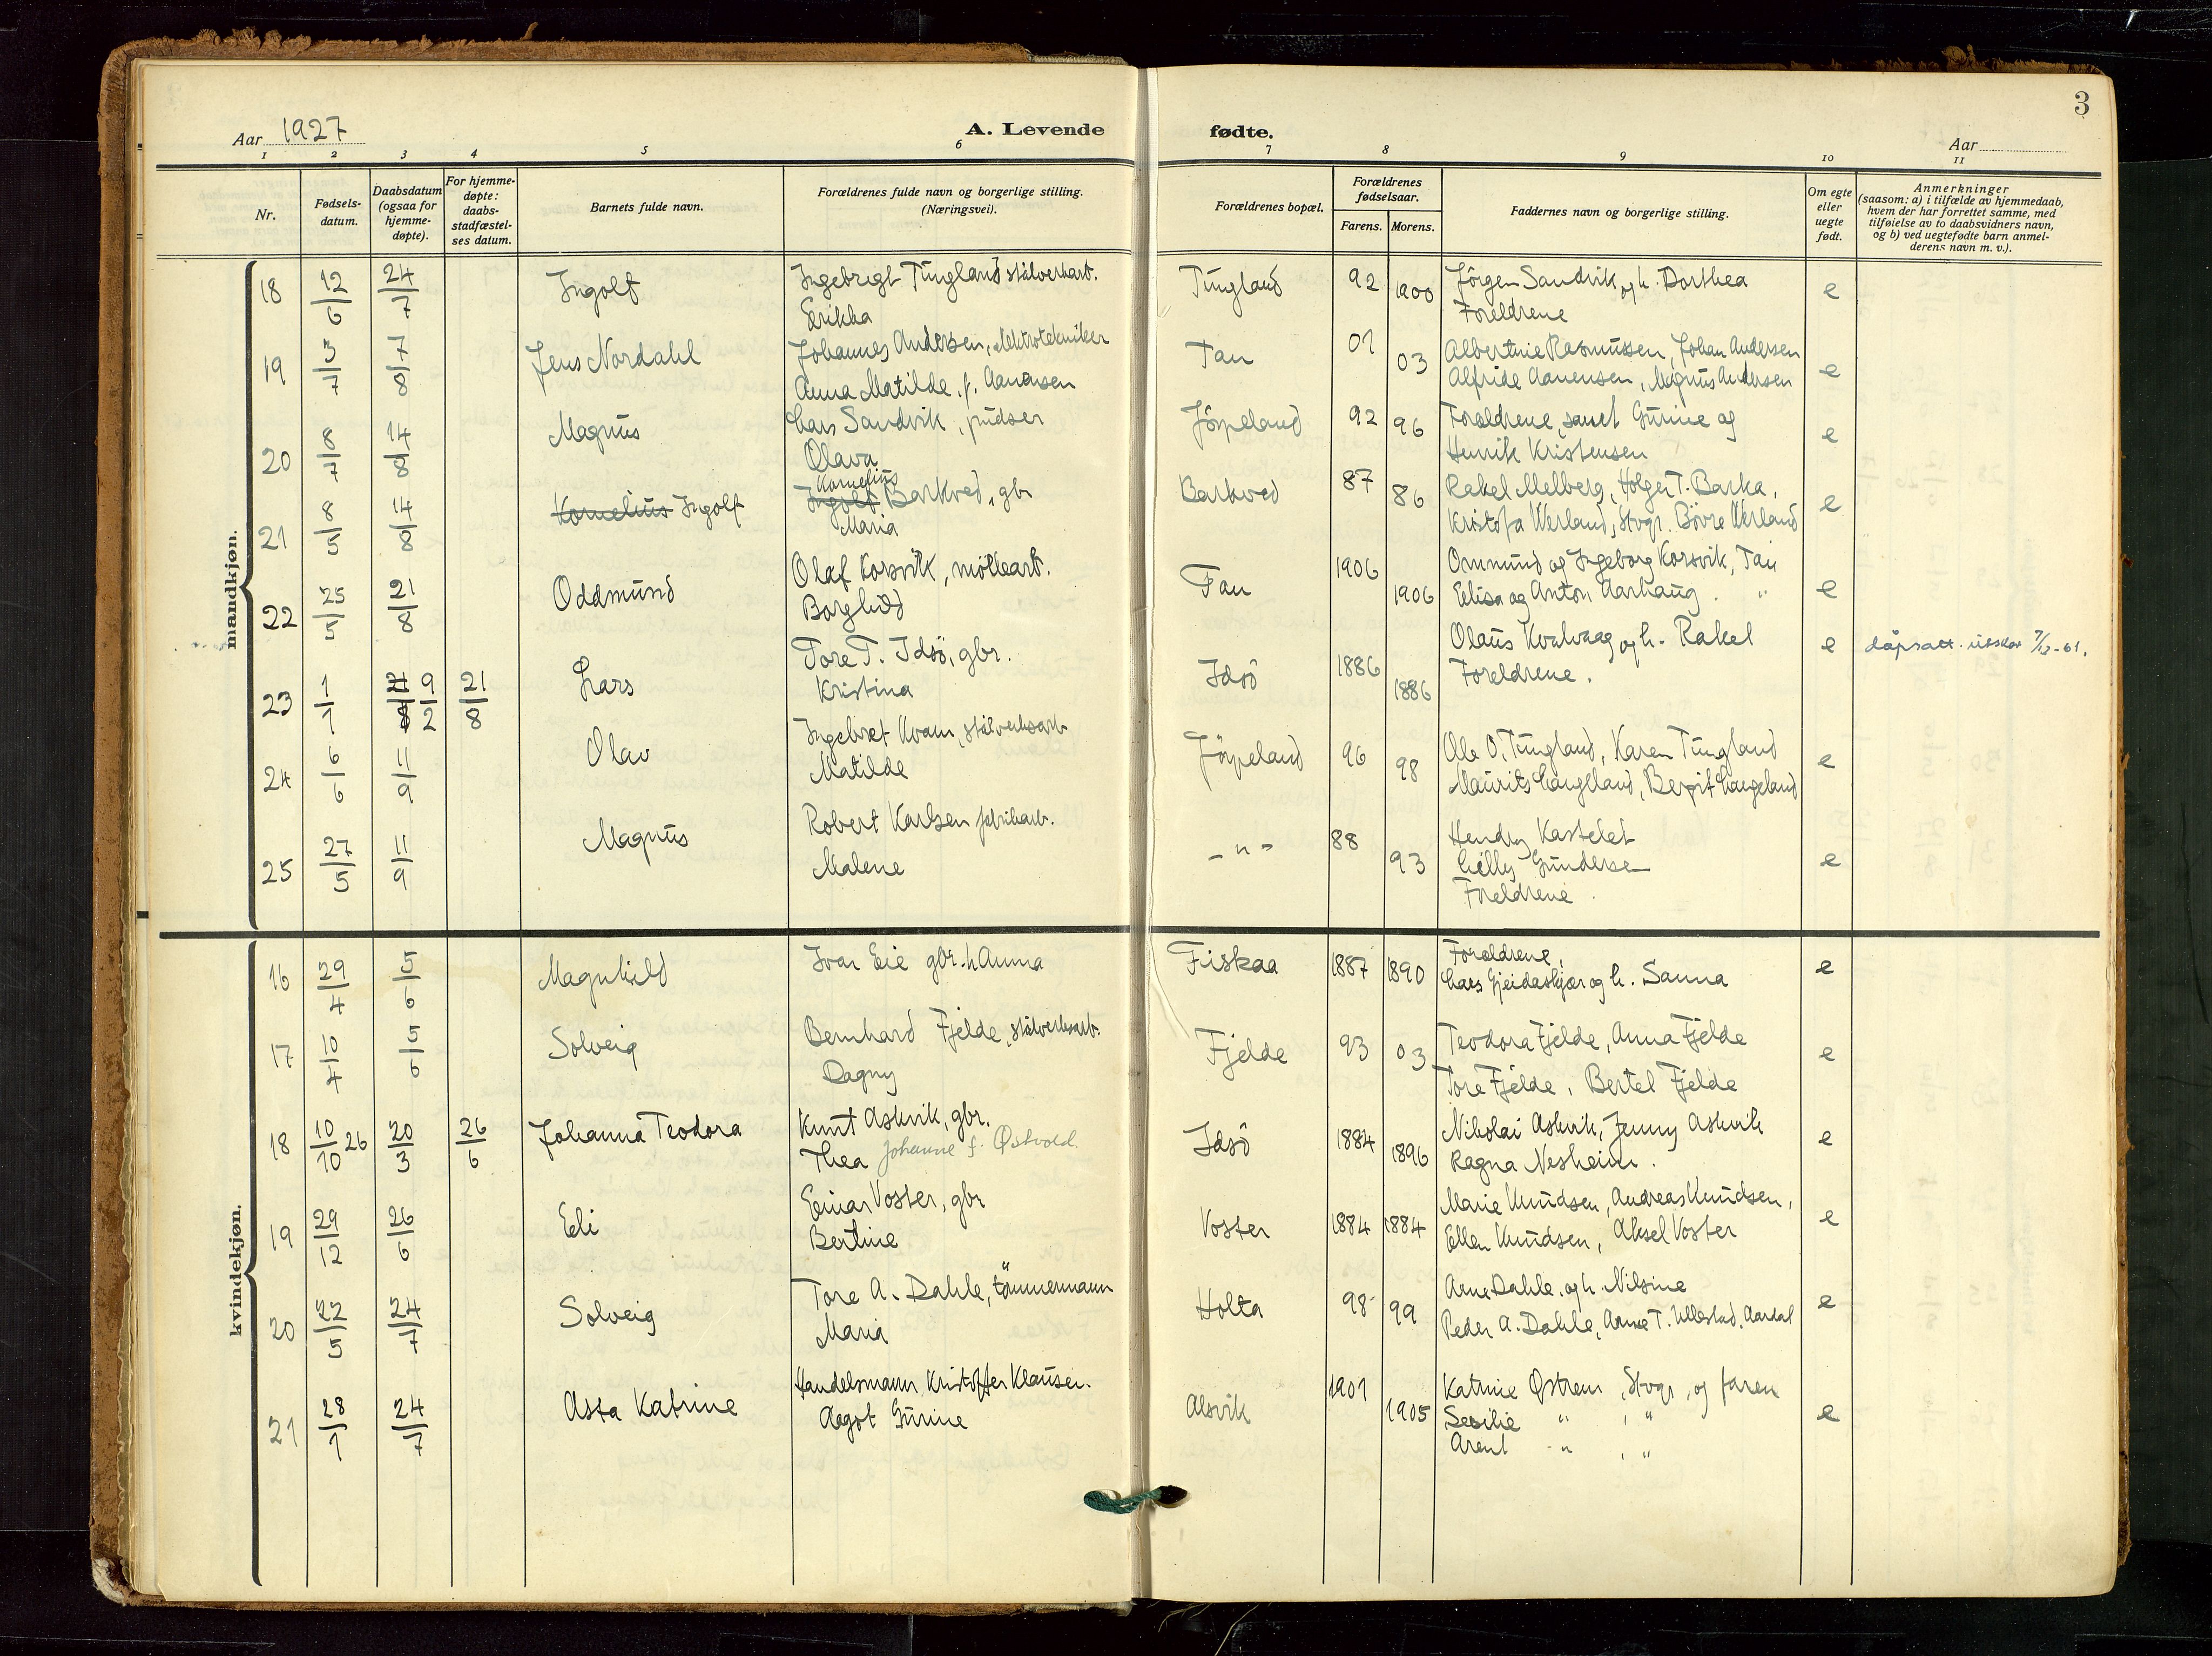 3
Aar 1927
A. Levende
fødte.
Aar
1 2 3 4 5 6 7 8 9 10 11
Nr.
Fødsels-
datum.
Daabsdatum
(ogsaa for
hjemme-
døpte).
For hjemme-
døpte:
daabs-
stadfæstel-
ses datum.
Barnets fulde navn.
Forældrenes fulde navn og borgerlige stilling.
(Næringsvei).
Forældrenes bopæl.
Forældrenes
fødselsaar.
Farens. Morens.
Faddernes navn og borgerlige stilling.
Om egte
eller
uegte
født.
Anmerkninger
(saasom: a) i tilfælde av hjemmedaab,
hvem der har forrettet samme, med
tilføielse av to daabsvidners navn,
og b) ved uegtefødte barn anmel-
derens navn m. v.).
mandkjøn.
18 12/6 24/7 Ingolf Ingebrigt Tungland stålverkarb. Tungland 92 1900 Jörgen Sandvik og h. Dorthea e
Erikka Foreldrene
19 3/7 7/8 Jens Nordahl Johannes Andersen, elektrotekniker Tau 01 03 Albertine Rasmussen, Johan Andersen e
Anna Matilde f. Aanensen Alfride Aanensen, Magnus Andersen
20 8/7 14/8 Magnus Lars Sandvik, pudser Jörpeland 92 96 Foreldrene, samt Gurine og e
Olava Henrik Kristensen
21 8/5 14/8 Kornelius Ingolf Kornelius
Ingolf Barkved, gbr Barkved 87 86 Rakel Melberg, Holger T. Barka, e
Maria Kristofa Werland, Stvgr. Börre Werland
22 25/5 21/8 Oddmund Olaf Korsvik, möllearb. Tau 1906 1906 Ommund og Ingeborg Korsvik, Tau e
Borghild Elisa og Anton Aarhaug. "
23 1/1 21/8 9/2 21/8 Lars Tore T. Idsö, gbr. Idsö 1886 1886 Olaus Kvalvaag og h. Rakel e dåpsatt. utskr 7/12-61.
Kristina Foreldrene.
24 6/6 11/9 Olav Ingebret Kvam, stålverksarb Jörpeland 96 98 Ole O. Tungland, Karen Tungland e
Matilde Maurits Langeland, Bergit Langeland
25 27/5 11/9 Magnus Robert Karlsen fabrikarb. - " - 88 93 Hendry Kastelet e
Malene Gundersen
Foreldrene
kvindekjøn.
16 29/4 5/6 Magnhild Ivar Eie gbr. h Anna Fiskaa 1887 1890 Foreldrene, e
Lars Gjeidaskjær og h. Sanna
17 10/4 5/6 Solveig Bernhard Fjelde, stålverksarb. Fjelde 93 03 Teodora Fjelde, Anna Fjelde e
Dagny Tore Fjelde, Bertel Fjelde
18 10/10 26 20/3 26/6 Johanna Teodora Knut Askvik, gbr. Idsö 1884 1896 Nikolai Askvik, Jenny Askvik e
Thea Johanne f. Østvold. Ragna Nesheim.
19 29/12 26/6 Eli Einar Voster, gbr Voster 1884 1884 Marie Knudsen, Andreas Knudsen, e
Bertine Ellen Knudsen, Aksel Voster
20 22/5 24/7 Solveig Tore A. Dahle, tömmermann Holta 98 99 Arne Dahle. og h. Nilsine e
Maria Peder A. Dahle, Anne T. Ullestad, Aardal
21 28/1 24/7 Asta Katrine Handelsmann Kristoffer Klausen. Alsvik 1901 1905 Katrine Østrem, Stvgr, og faren e
Aagot Gurine Sesilie " , "
Arent " , "